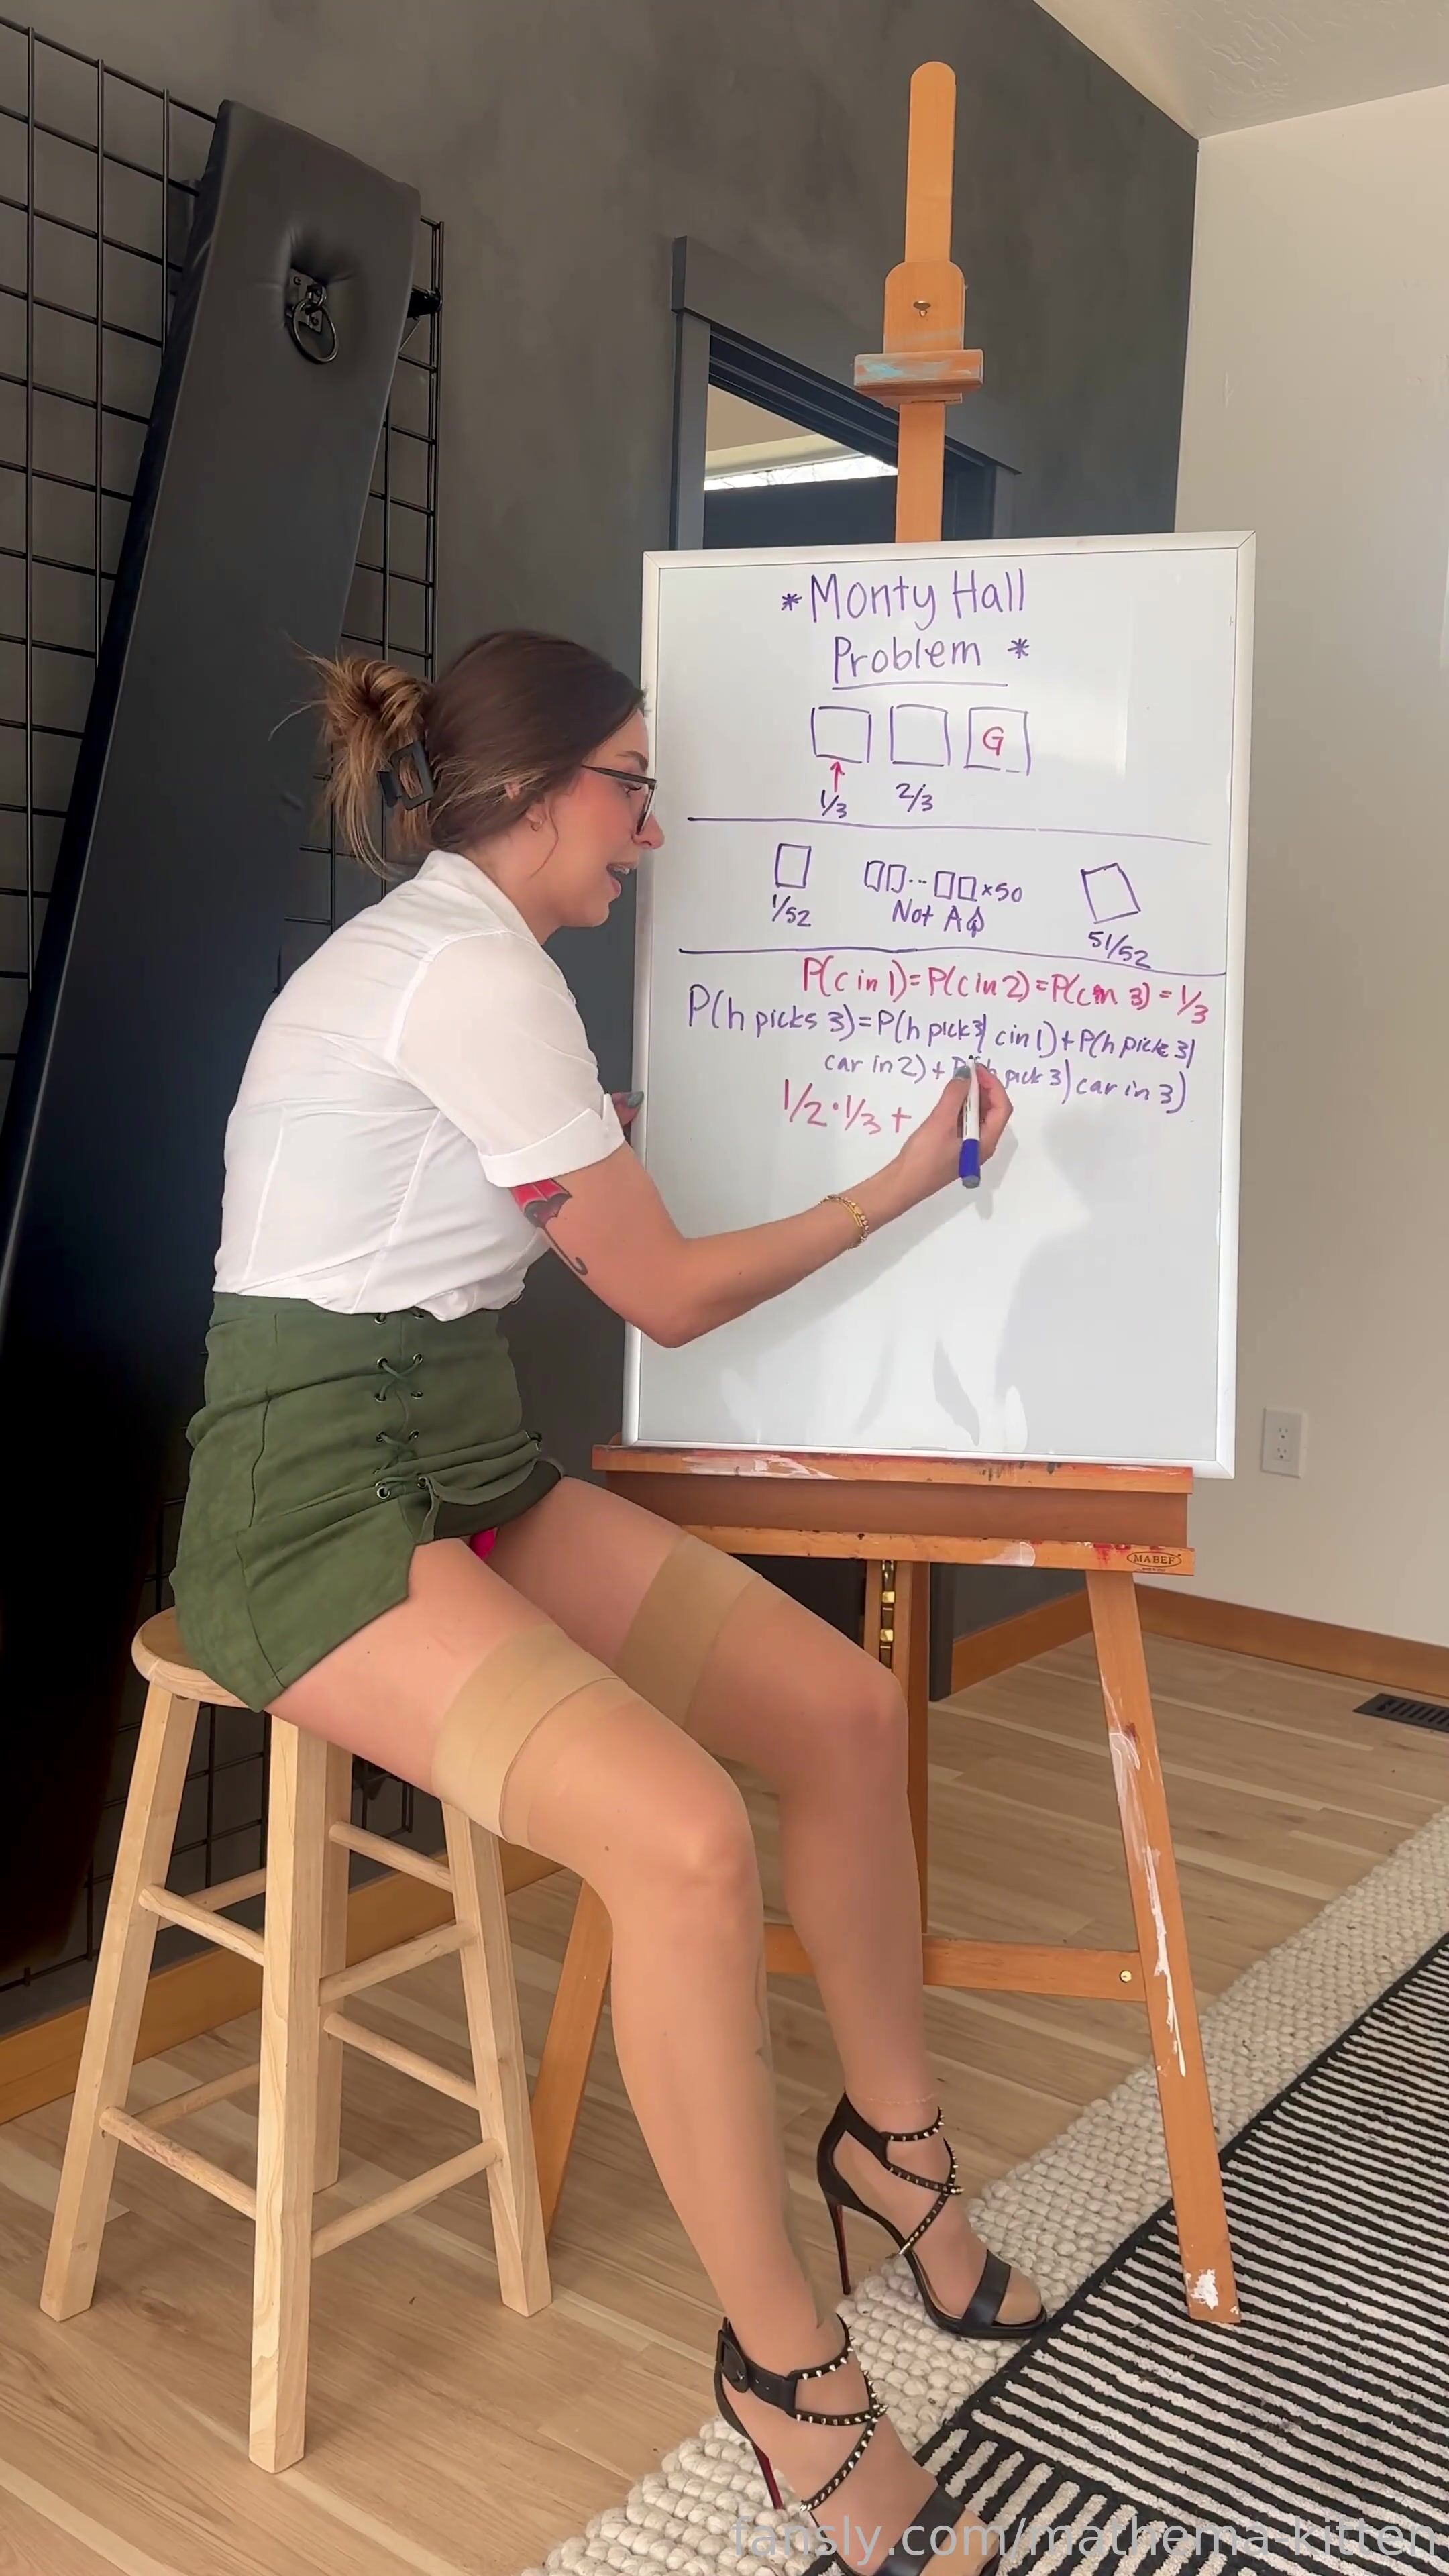 *Monty Hall
Problem *
G
1/3 2/3
x50
1/52 Not A♠ 51/52
P(c in 1)=P(c in 2)=P(c in 3)=1/3
P(h picks 3)=P(h pick 3| c in 1)+P(h pick 3|
car in 2)+P(h pick 3| car in 3)
1/2·1/3+
MABEF
fansly.com/mathema-kitten